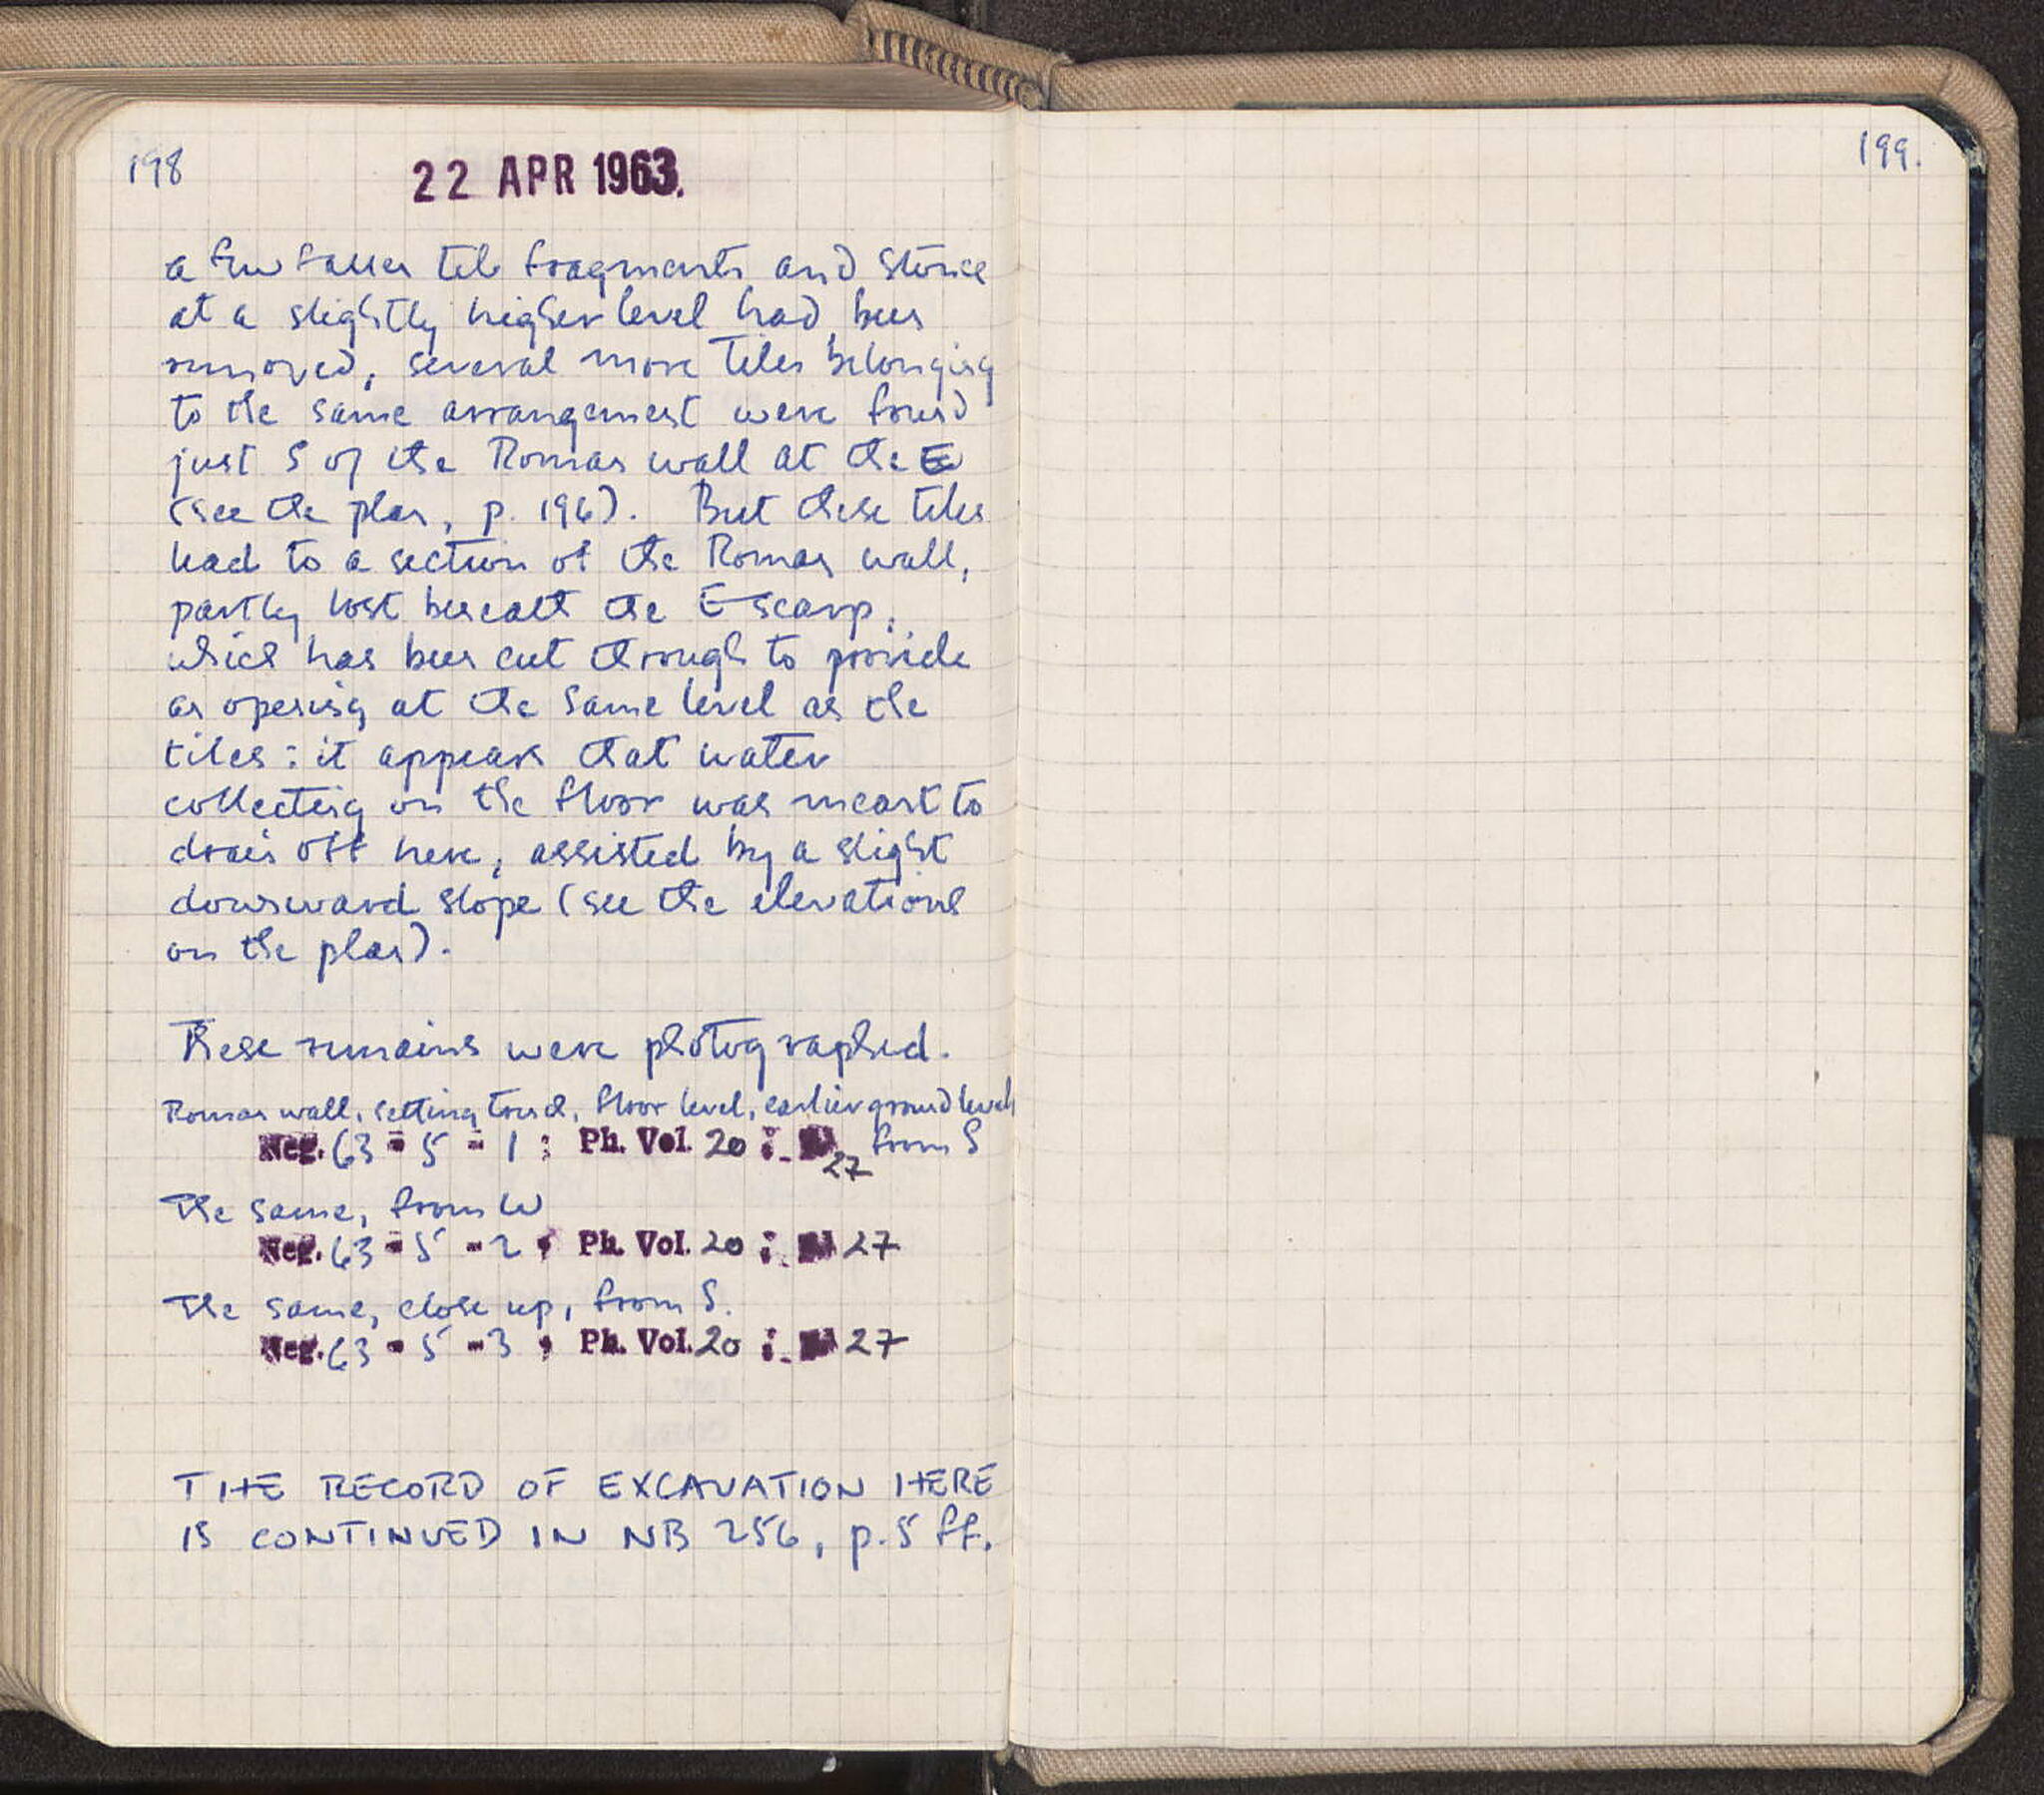 198
22 APR 1963.
a few fallen tile fragments and stones
at a slightly higher level had been
removed, several more tiles belonging
to the same arrangement were found
just S of the Roman wall at the E
(see the plan, p. 196). But these tiles
lead to a section of the Roman wall,
partly lost beneath the E scarp,
which has been cut through to provide
an opening at the same level as the
tiles: it appears that water
collecting on the floor was meant to
drain off here, assisted by a slight
downward slope (see the elevations
on the plan).
These remains were photographed.
Roman wall, setting found, floor level, earlier ground level,
Neg. 63 - 5 - 1 ; Ph. Vol. 20 ; 27 from S
The same, from W
Neg. 63 - 5 - 2 ; Ph. Vol. 20 ; 27
The same, close up, from S.
Neg. 63 - 5 - 3 ; Ph. Vol. 20 ; 27
THE RECORD OF EXCAVATION HERE
IS CONTINUED IN NB 256, p. 5 ff.
199.